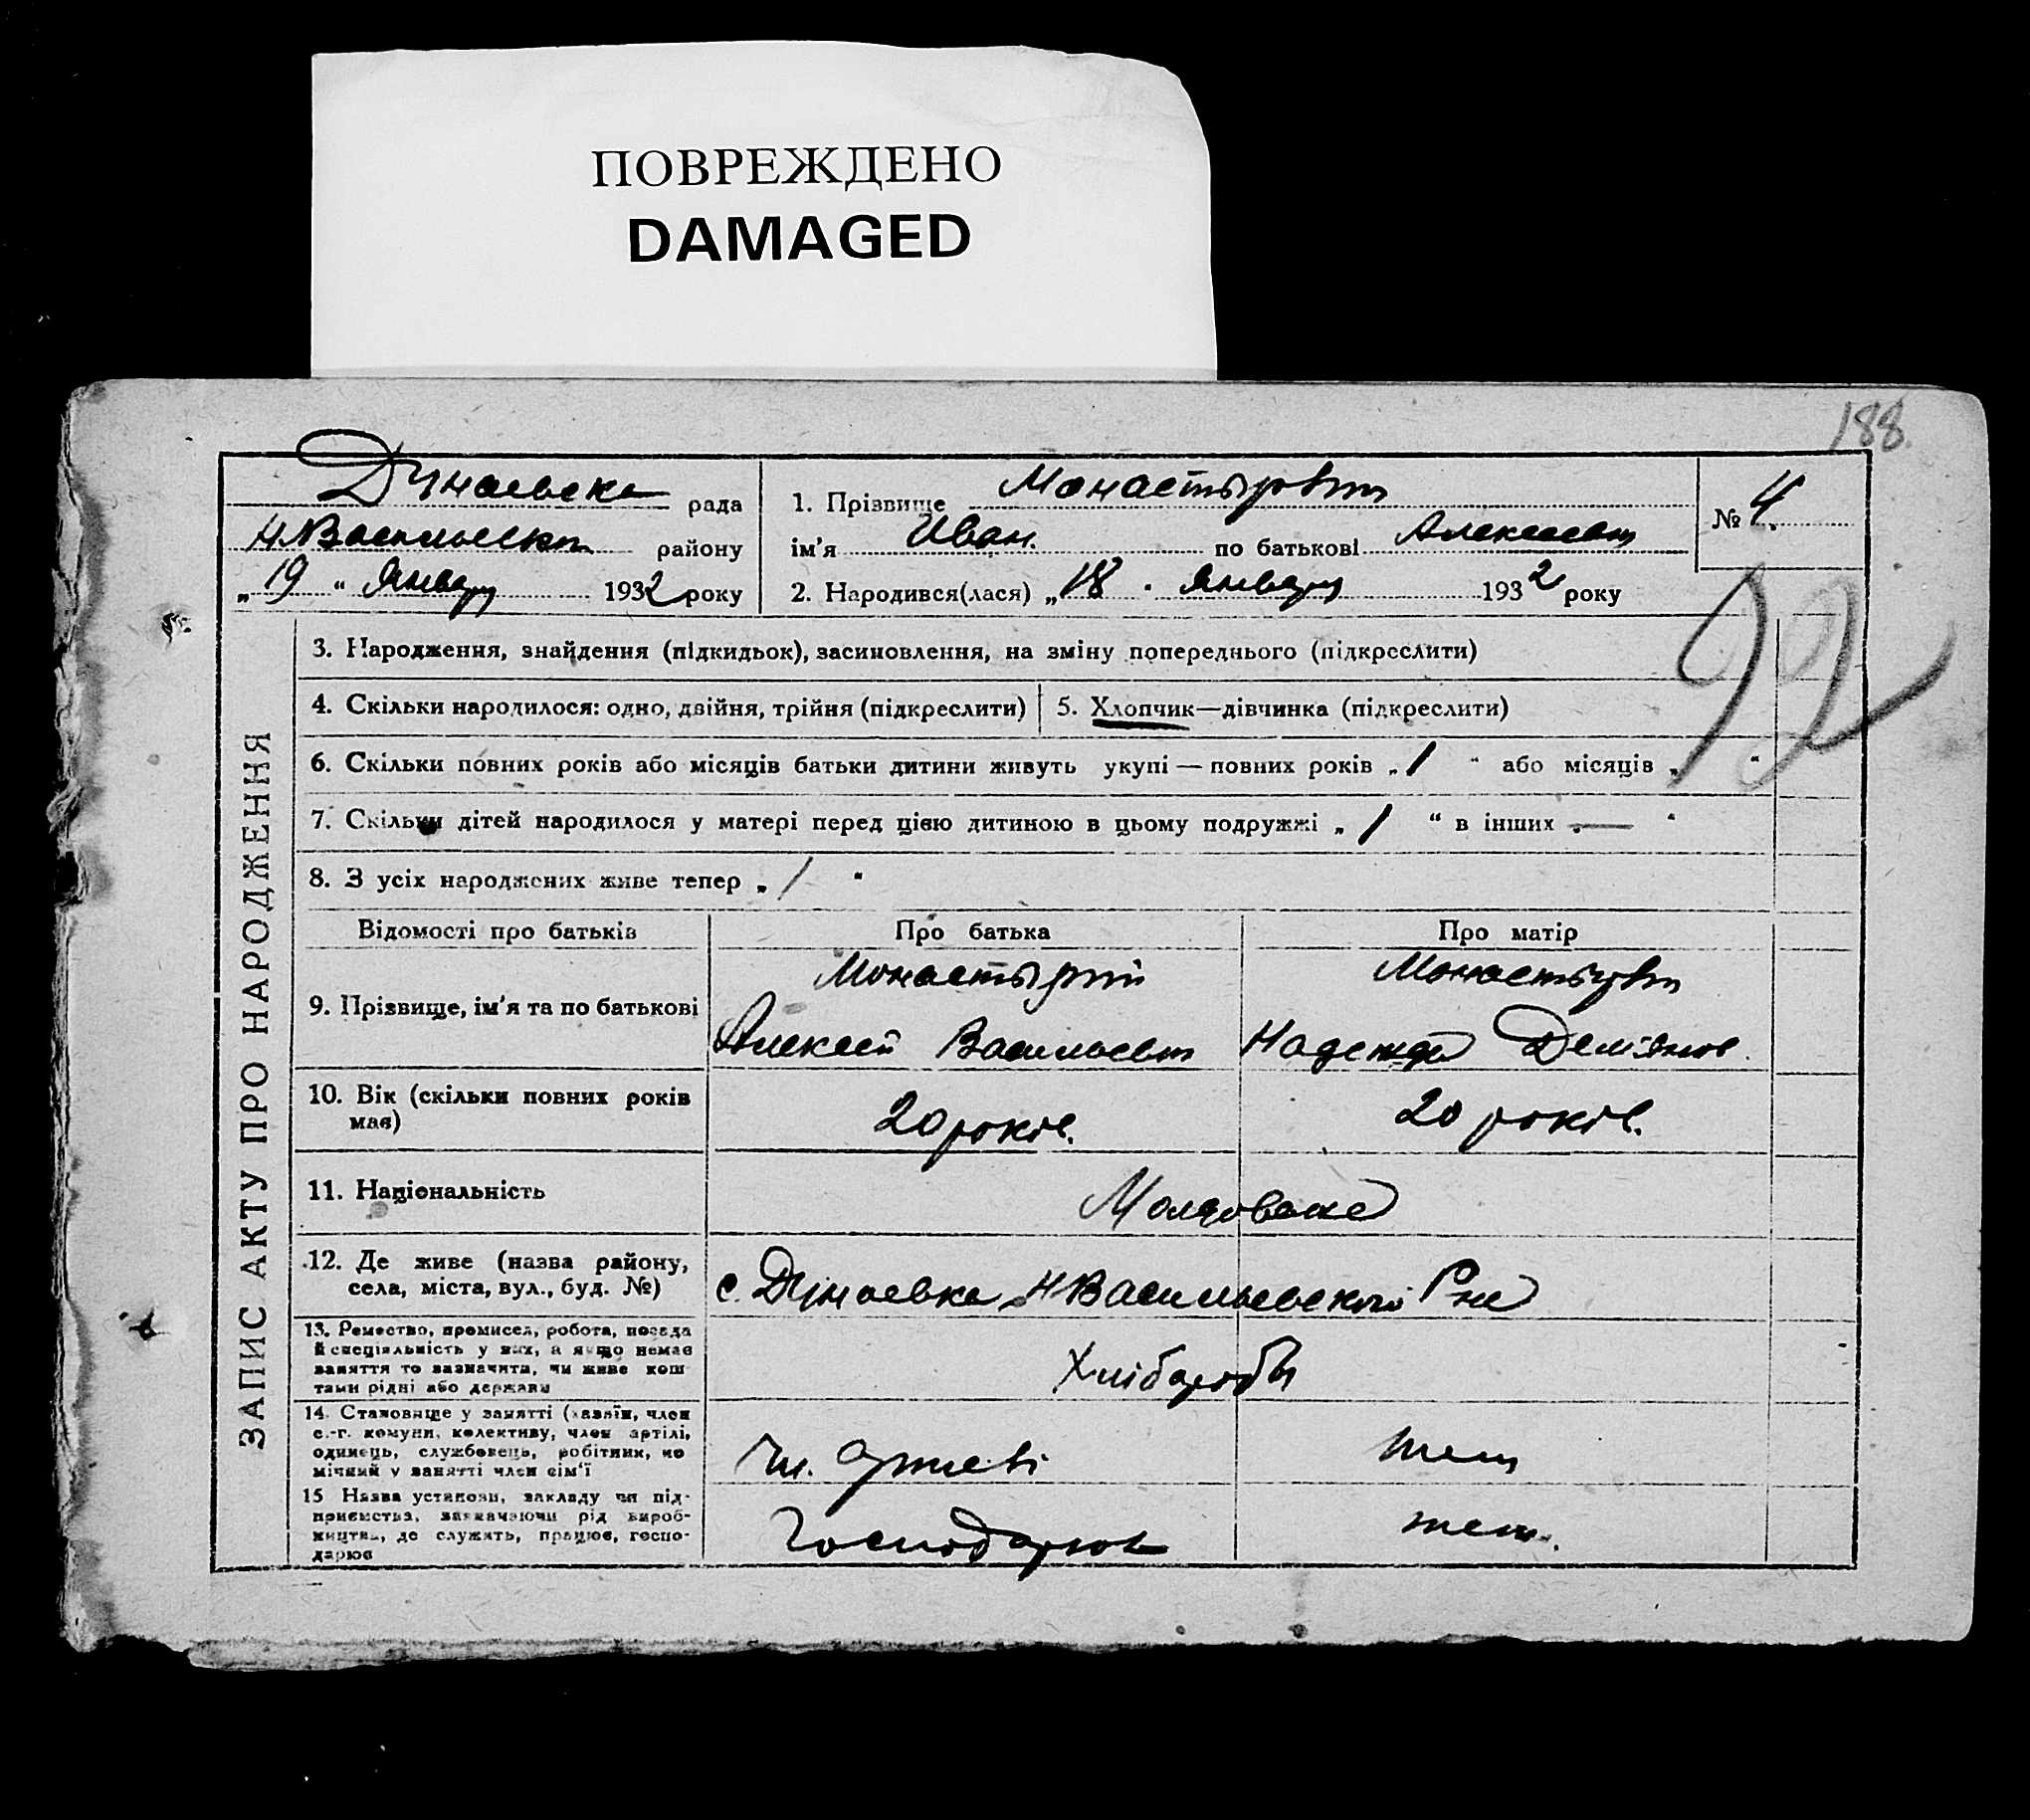 ПОВРЕЖДЕНО
DAMAGED
188.
Дунаевска рада
Н.Васильевск району
„ 19 “ Январ 1932 року
1. Прізвище
ім'я Иван. по батькові Алексеев
2. Народився(лася) „ 18 . Январ 1932 року
№ 4.
92
ЗАПИС АКТУ ПРО НАРОДЖЕННЯ
3. Народження, знайдення (підкидьок), засиновлення, на зміну попереднього (підкреслити)
4. Скільки народилося: одно, двійня, трійня (підкреслити)
5. Хлопчик—дівчинка (підкреслити)
6. Скільки повних років або місяців батьки дитини живуть укупі — повних років „ 1 “ або місяців „ “
7. Скільки дітей народилося у матері перед цією дитиною в цьому подружжі „ 1 “ в інших „ — “
8. З усіх народжених живе тепер „ 1 “
Відомості про батьків
Про батька
Про матір
9. Прізвище, ім'я та по батькові
Алексей Васильев
Надежда Демянов.
10. Вік (скільки повних років має)
20 років.
20 років.
11. Національність
Молдоване
12. Де живе (назва району,
села, міста, вул., буд. №)
с. Дунаевка Н Васильевского Р не
13. Ремество, промисел, робота, посада
й спеціяльність у них, а якщо немає
заняття то зазначити, чи живе кош
тами рідні або держави
Хлібороби
14. Становище у занятті (хазяїн, член
с.-г. комуни, колективу, член артілі,
одинець, службовець, робітник, по
мічний у занятті член сім'ї
чл. Артелі
15 Назва установи, закладу чи під-
приємства, зазначаючи рід вироб-
ництва, де служить, працює, госпо-
дарює